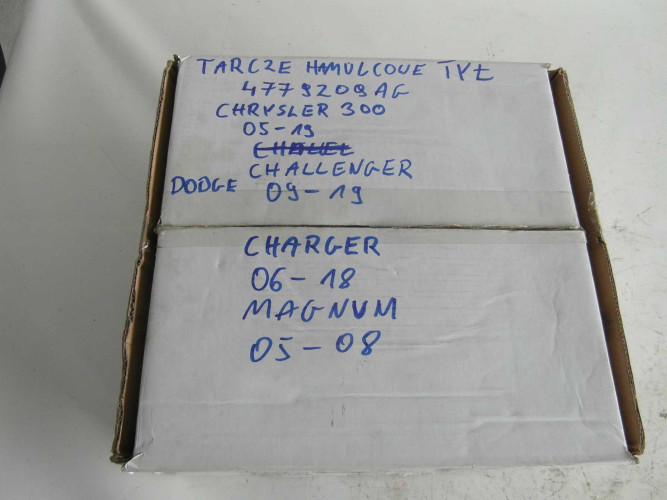 TARCZE HAMULCOWE TYŁ
4779209AG
CHRYSLER 300
05-19
CHALLENGER
DODGE 09-19
CHARGER
06-18
MAGNUM
05-08